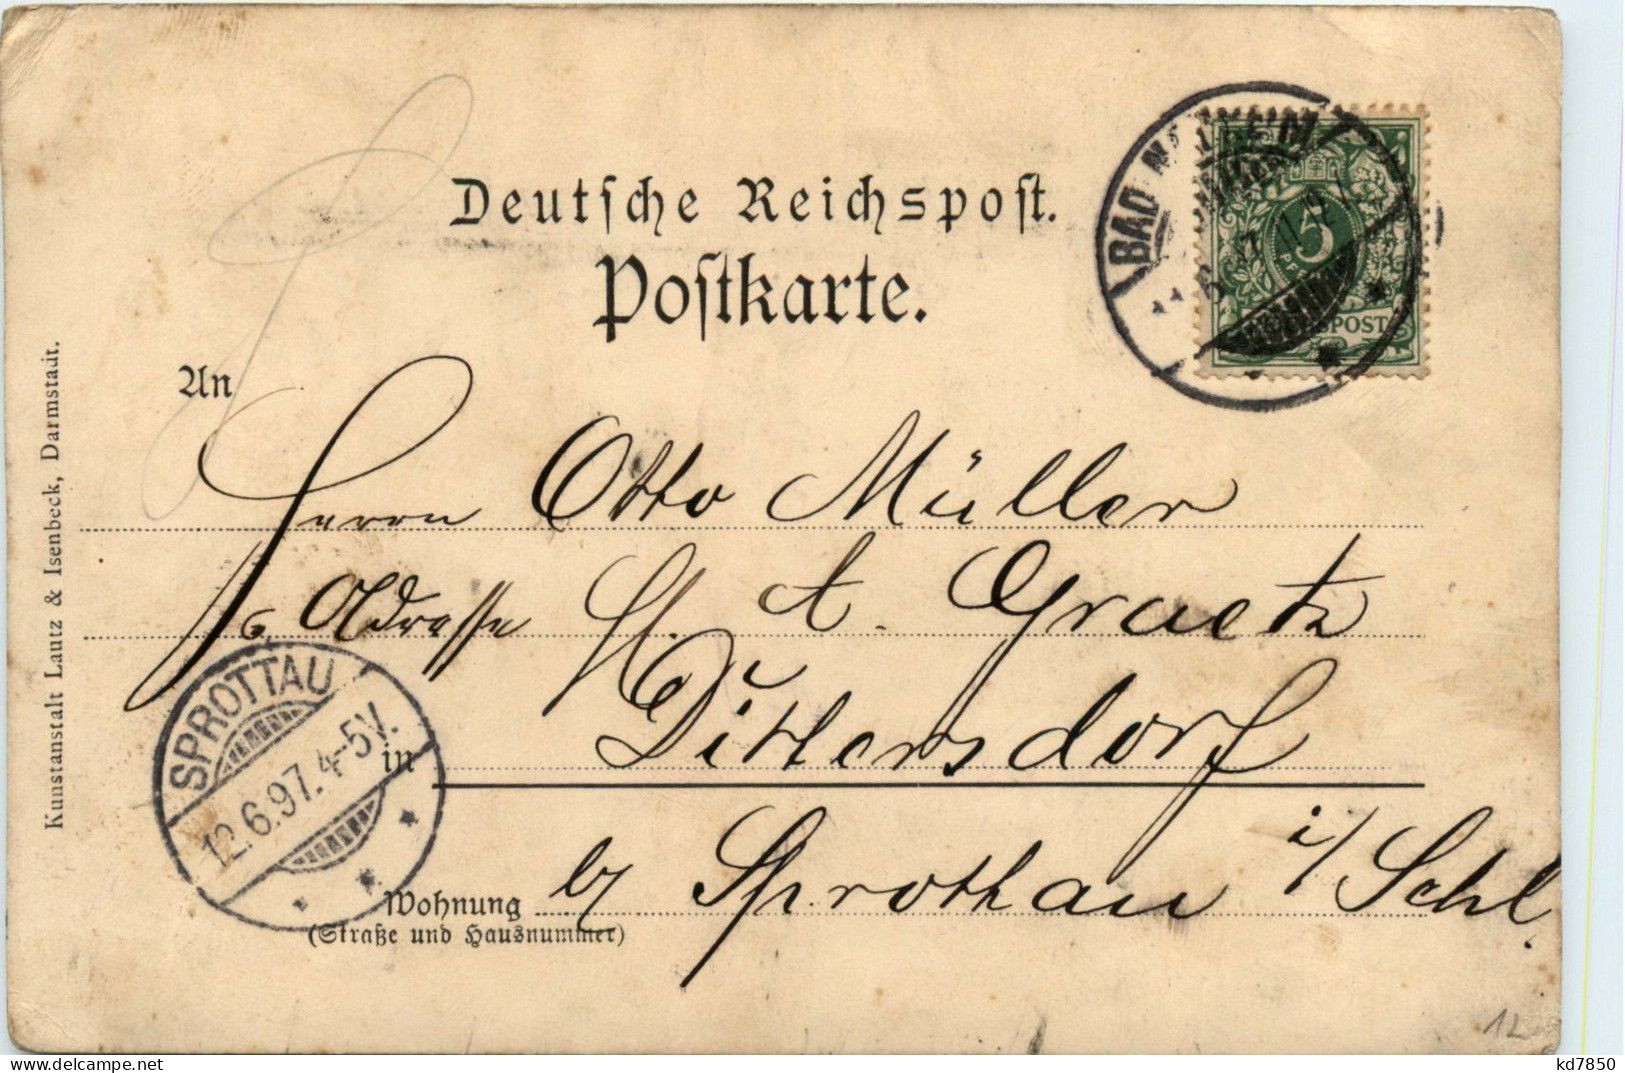 Deutsche Reichspost.
Postkarte.
An
Herrn Otto Müller
Adresse H. A. Graetz
in Dittersdorf
b/ Sprottau i/ Schl.
Wohnung
(Straße und Hausnummer)
Kunstanstalt Lautz & Isenbeck, Darmstadt.
BAD
5
REICHSPOST
SPROTTAU
12.6.97. 4-5V.
12
kd7850